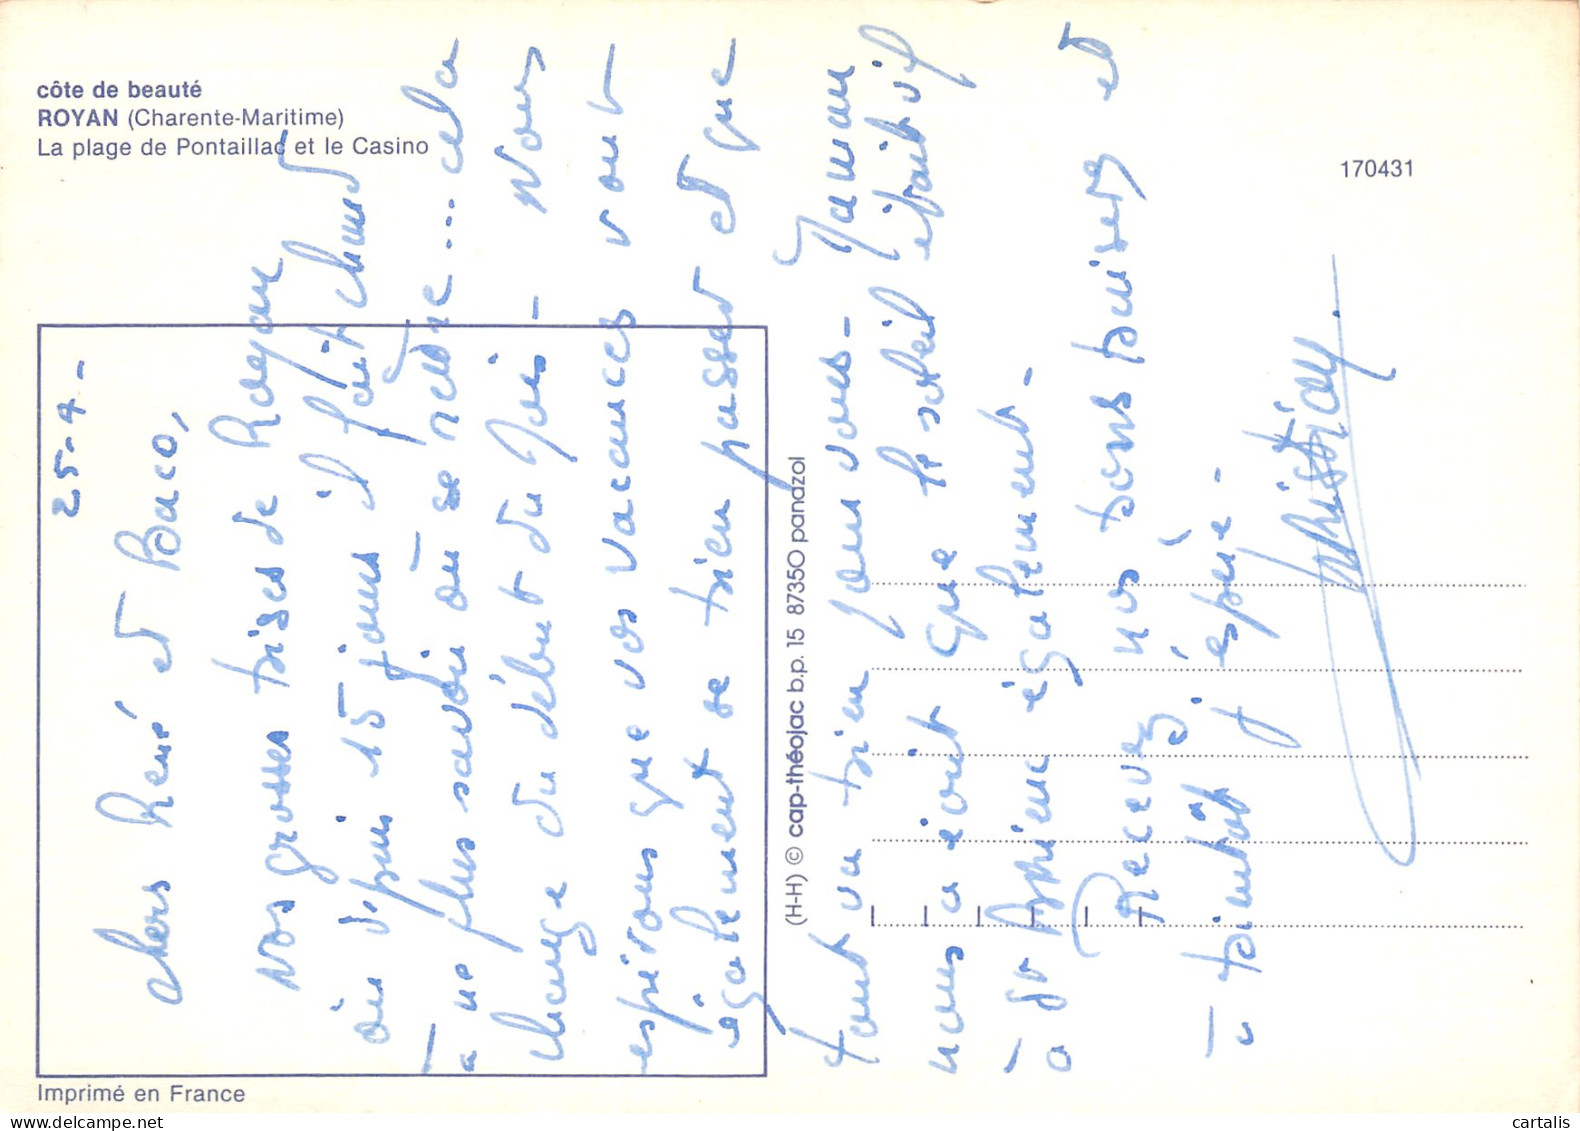 côte de beauté
ROYAN (Charente-Maritime)
La plage de Pontaillac et le Casino
170431
25-4-
Chers René et Paco,
Nos grosses bises de Royan
où depuis 15 jours il fait chaud
à ne plus savoir où se mettre... cela
change du début du mois - Nous
espérons que vos vacances vont
également se bien passer et que
tout va bien pour vous - Maman
nous a écrit que le soleil était vif
à St également -
Recevez nos bons baisers et
à bientôt j'espère -
Christian
(H-H) © cap-théojac b.p. 15 87350 panazol
Imprimé en France
cartalis